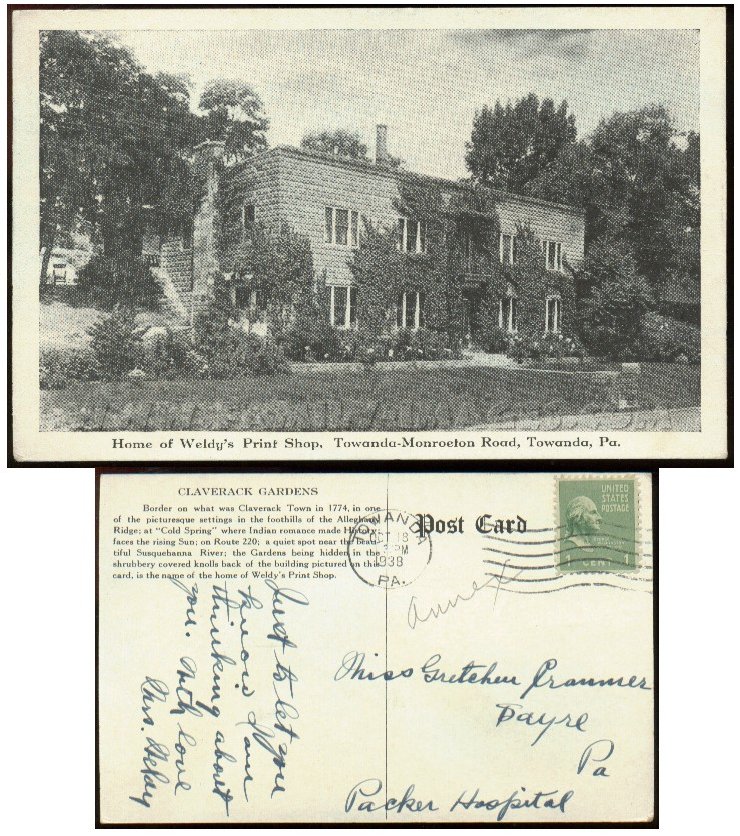 Home of Weldy's Print Shop, Towanda-Monroeton Road, Towanda, Pa.
CLAVERACK GARDENS
Border on what was Claverack Town in 1774, in one
of the picturesque settings in the foothills of the Allegheny
Ridge; at "Cold Spring" where Indian romance made History
faces the rising Sun; on Route 220; a quiet spot near the beau-
tiful Susquehanna River; the Gardens being hidden in the
shrubbery covered knolls back of the building pictured on this
card, is the name of the home of Weldy's Print Shop.
Just to let you
know I am
thinking about
you. With love
Mrs.
Post Card
TOWANDA
OCT 18
PM
1938
PA.
UNITED
STATES
POSTAGE
1
CENT
Annex
Miss Gretchen Cranmer
Sayre
Pa
Packer Hospital